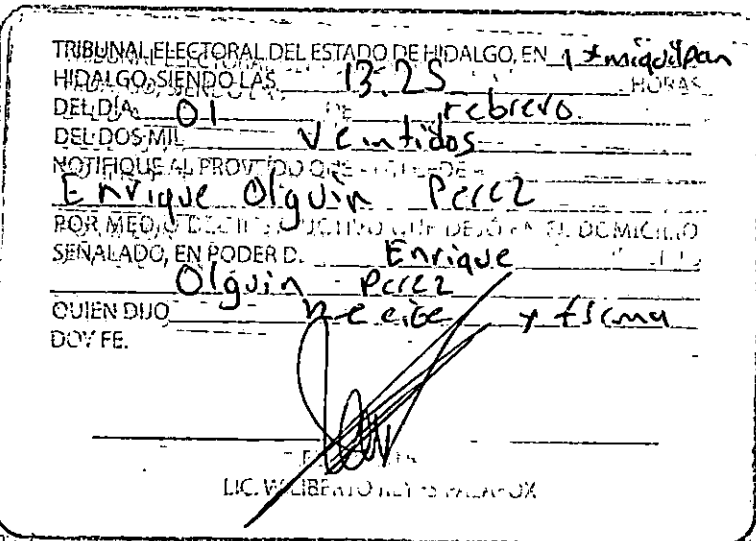 TRIBUNAL ELECTORAL DEL ESTADO DE HIDALGO, EN Ixmiquilpan
HIDALGO, SIENDO LAS 13:25 HORAS
DEL DÍA 01 DE Febrero
DEL DOS MIL Veintidos
NOTIFIQUE AL PROVEIDO QUE
Enrique Olguin Perez
POR MEDIO QUE DEJÓ EN EL DOMICILIO
SEÑALADO, EN PODER D. Enrique
Olguin Perez
QUIEN DIJO Recibe y firma
DOY FE.
LIC. REYES PALAFOX